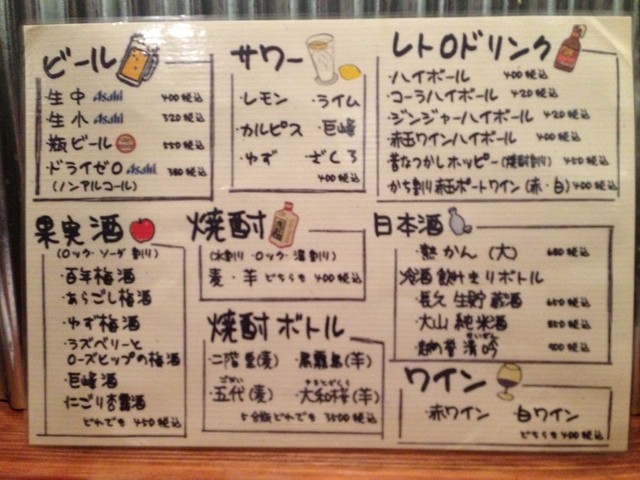 ビール
・生中 Asahi 400税込
・生小 Asahi 320税込
・瓶ビール 550税込
・ドライゼロ Asahi 380税込
(ノンアルコール)
サワー
・レモン ・ライム
・カルピス ・巨峰
・ゆず ・ざくろ
400税込
レトロドリンク
・ハイボール 400税込
・コーラハイボール 420税込
・ジンジャーハイボール 420税込
・赤玉ワインハイボール 400税込
昔なつかしホッピー(焼酎割り) 450税込
かち割り赤玉ポートワイン(赤・白)400税込
果実酒
(ロック・ソーダ割り)
・百年梅酒
・あらごし梅酒
・ゆず梅酒
・ラズベリーと
ローズヒップの梅酒
・巨峰酒
・にごり杏露酒
どれでも 450税込
焼酎
(水割り・ロック・湯割り)
麦・芋 どちらも 400税込
焼酎ボトル
・二階堂(麦) ・黒霧島(芋)
・五代(麦) ・大和桜(芋)
5合瓶どれでも 3500税込
日本酒
・熱かん(大) 680税込
冷酒 飲みきりボトル
・長久 生貯蔵酒 650税込
・大山 純米酒 850税込
・越の誉 清吟 900税込
ワイン
・赤ワイン ・白ワイン
どちらも400税込